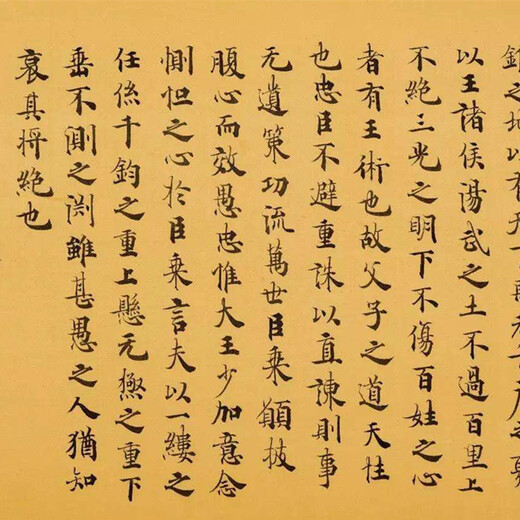 錐之地以有天下禹无十户之聚
以王諸侯湯武之土不過百里上
不絕三光之明下不傷百姓之心
者有王術也故父子之道天性
也忠臣不避重誅以直諫則事
无遺策功流萬世臣乘願披
腹心而效愚忠惟大王少加意念
惻怛之心於臣乘言夫以一縷之
任係千鈞之重上懸无極之重下
垂不測之渕雖甚愚之人猶知
哀其将絕也